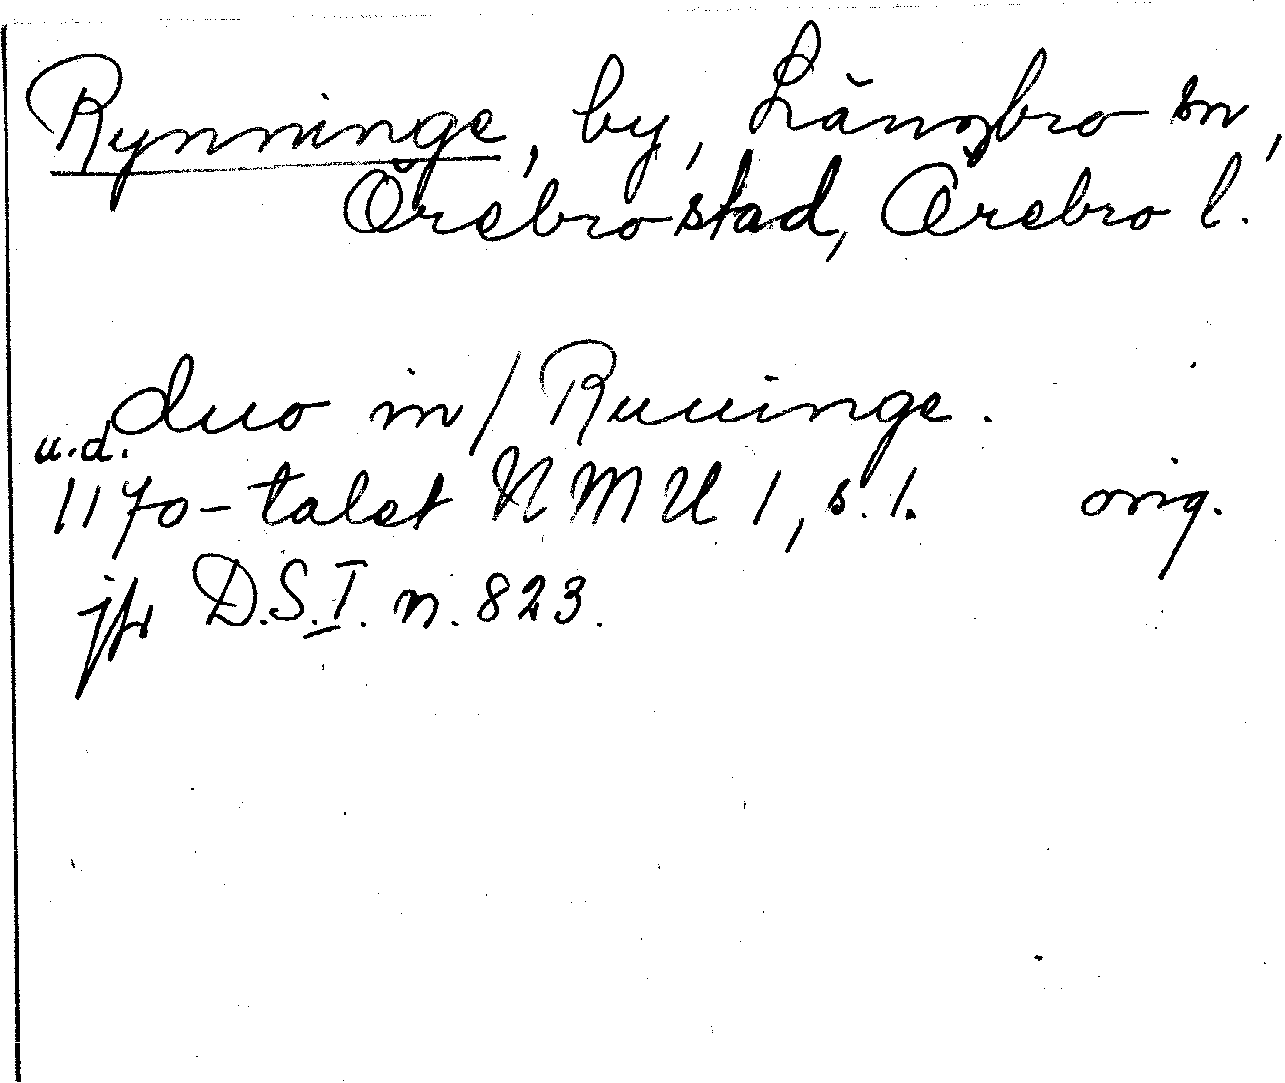 Rynninge, by, Längbro sn,
Örebro stad, Örebro l.
duo in / Ruuinge.
u.d.
1170-talet NMU 1, s. 1. orig.
jfr D.S.I. n. 823.